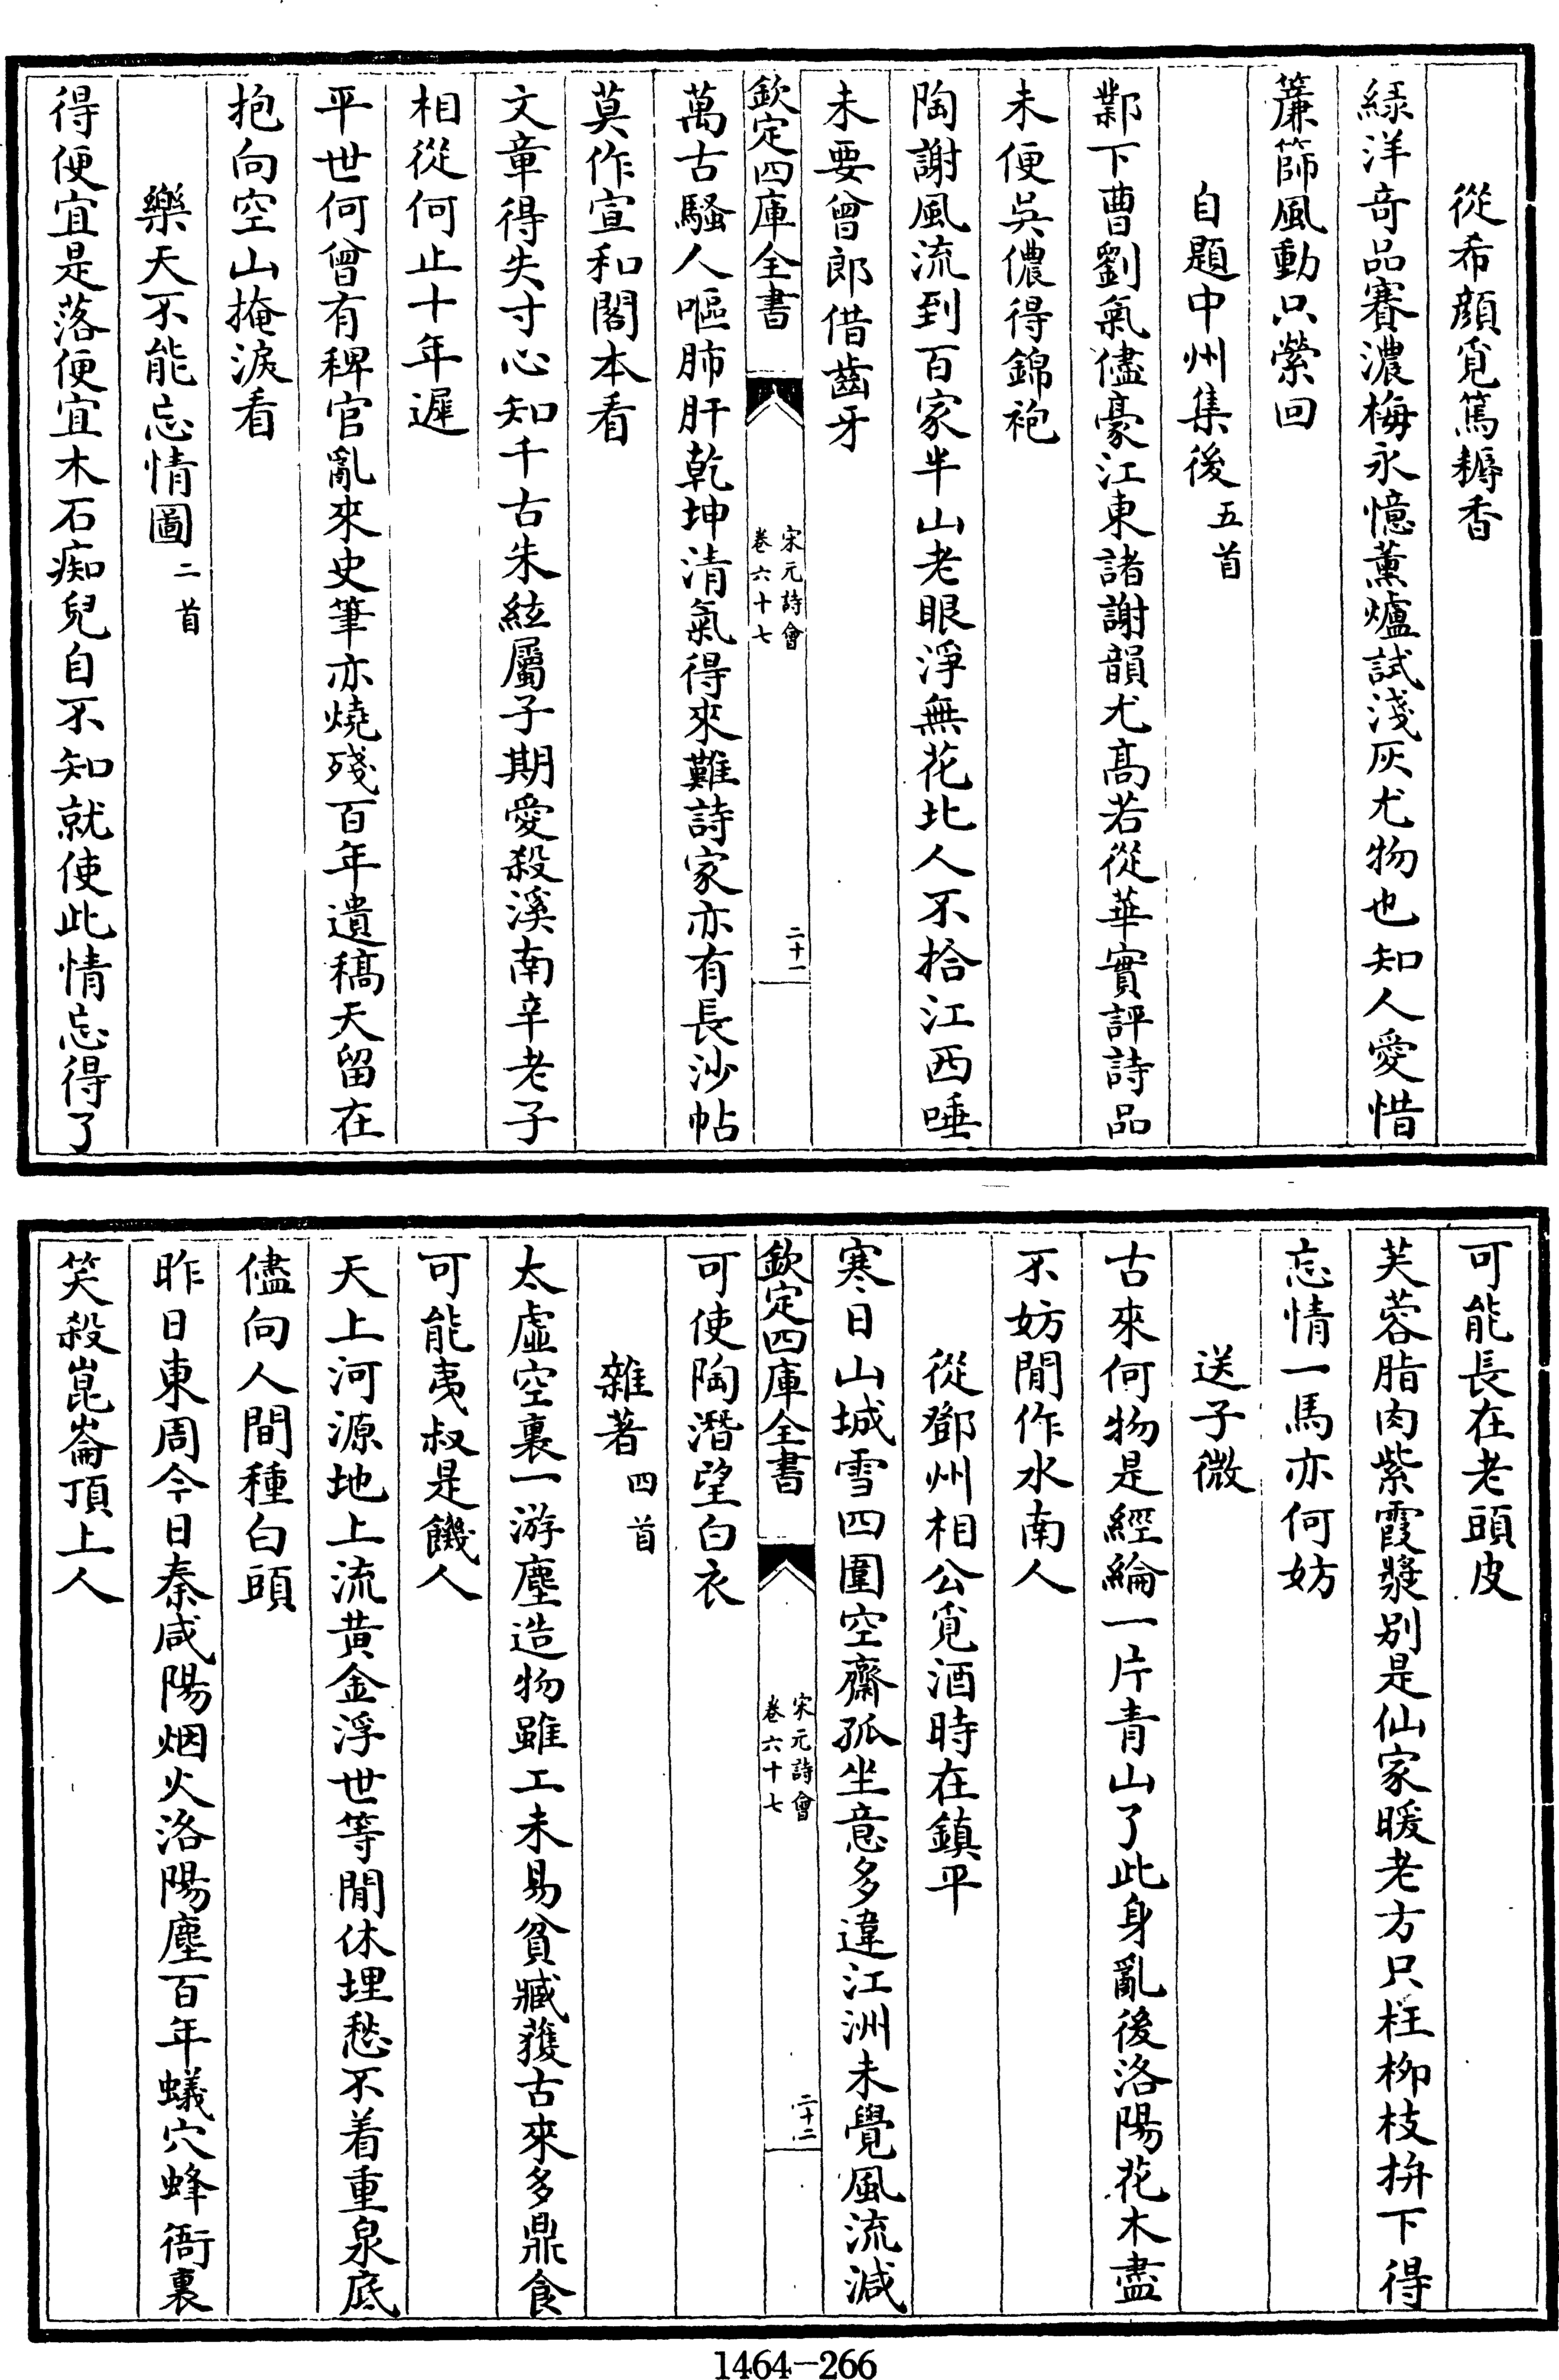 從希顔覓篤耨香
綠洋奇品賽濃梅永憶薰爐試淺灰尤物也知人愛惜
簾篩風動只縈回
自題中州集後五首
鄴下曹劉氣儘豪江東諸謝韻尤髙若從華實評詩品
未便吳儂得錦袍
陶謝風流到百家半山老眼淨無花北人不拾江西唾
未要曾郎借齒牙
欽定四庫全書
宋元詩會
卷六十七
二十一
萬古騷人嘔肺肝乾坤清氣得來難詩家亦有長沙帖
莫作宣和閣本看
文章得失寸心知千古朱絃屬子期愛殺溪南辛老子
相從何止十年遲
平世何曾有稗官亂來史筆亦燒殘百年遺稿天留在
抱向空山掩淚看
樂天不能忘情圖二首
得便宜是落便宜木石痴兒自不知就使此情忘得了
可能長在老頭皮
芙蓉脂肉紫霞漿别是仙家暖老方只枉柳枝拚下得
忘情一馬亦何妨
送子微
古來何物是經綸一片青山了此身亂後洛陽花木盡
不妨閒作水南人
從鄧州相公覓酒時在鎮平
寒日山城雪四圍空齋孤坐意多違江洲未覺風流減
欽定四庫全書
宋元詩會
卷六十七
二十二
可使陶潛望白衣
雜著四首
太虛空裏一游塵造物雖工未易貧臧獲古來多鼎食
可能夷叔是饑人
天上河源地上流黄金浮世等閒休埋愁不着重泉底
儘向人間種白頭
昨日東周今日秦咸陽烟火洛陽塵百年蟻穴蜂衙裏
笑殺崑崙頂上人
1464—266